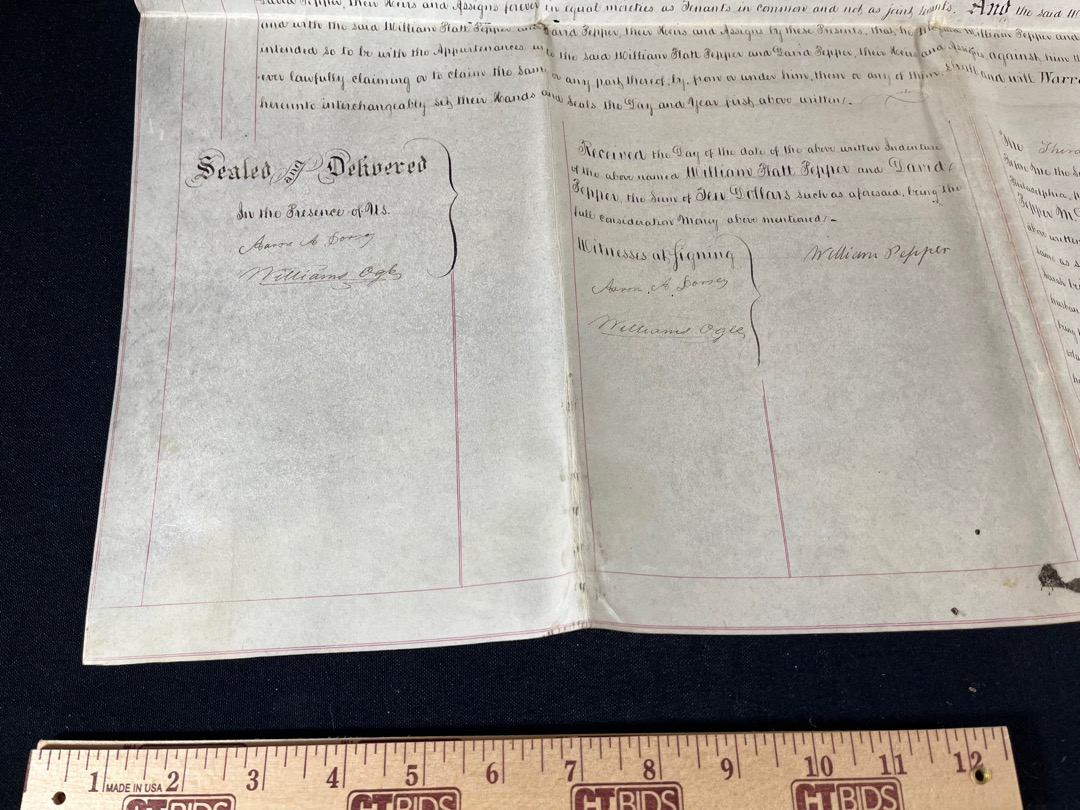 David Pepper, their Heirs and Assigns forever in equal moieties as Tenants in common and not as joint tenants. And the said
and with the said William Platt Pepper and David Pepper, their Heirs and Assigns by these Presents, that he William Pepper and
intended so to be with the Appurtenances unto the said William Platt Pepper and David Pepper, their Heirs and Assigns against him
ever lawfully claiming or to claim the same or any part thereof, by, from or under him, them or any of them Shall and will
hereunto interchangeably set their Hands and Seals the Day and Year first above written.
Sealed and Delivered
In the Presence of Us.
Aaron A. Dorsey
Williams Ogle
Received the Day of the date of the above written Indenture
of the above named William Platt Pepper and David
Pepper, the Sum of Ten Dollars such as aforesaid, being the
full consideration Money above mentioned.
Witnesses at Signing
William Pepper
Aaron A. Dorsey
Williams Ogle
The
Pepper
above written
same as
1 2 3 4 5 6 7 8 9 10 11 12
MADE IN USA
CTBIDS CTBIDS CTBIDS CTBIDS